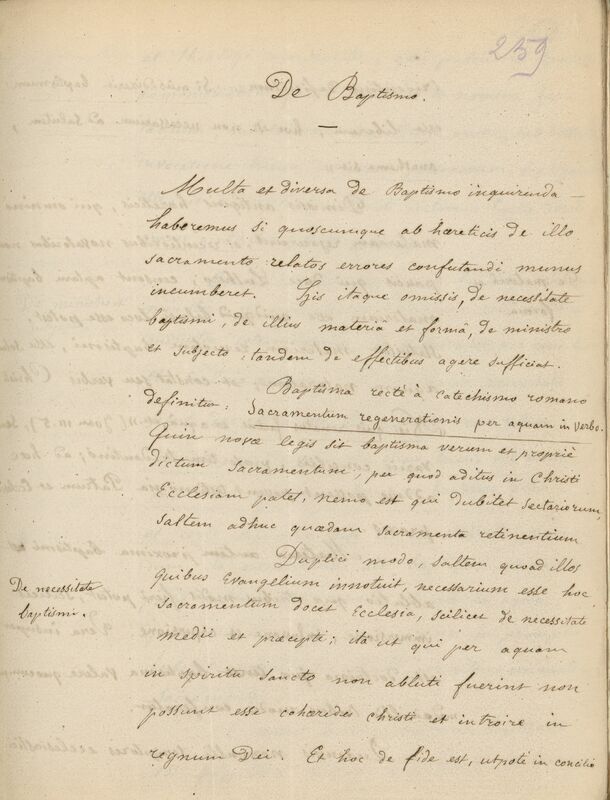 259
De Baptismo.
Multa et diversa de Baptismo inquirenda
haberemus si quoscumque ab hœreticis de illo
sacramento relatos errores confutandi munus
incumberet. His itaque omissis, de necessitate
baptismi, de illius materiâ et formâ, de ministro
et subjecto, tandem de effectibus agere sufficiat.
Baptisma rectè à catechismo romano
definitur: Sacramentum regenerationis per aquam in verbo.
Quin novæ legis sit baptisma verum et propriè
dictum sacramentum, per quod aditus in Christi
Ecclesiam patet, nemo est qui dubitet sectariorum,
saltem adhuc quædam sacramenta retinentium
Duplici modo, saltem quoad illos
quibus Evangelium innotuit, necessarium esse hoc
De necessitate
baptismi.
sacramentum docet Ecclesia, scilicet de necessitate
medii et præcepti; ità ut qui per aquam
in spiritu sancto non abluti fuerint non
possunt esse cohæredes Christi et introire in
regnum Dei. Et hoc de fide est, utpotè in concilio